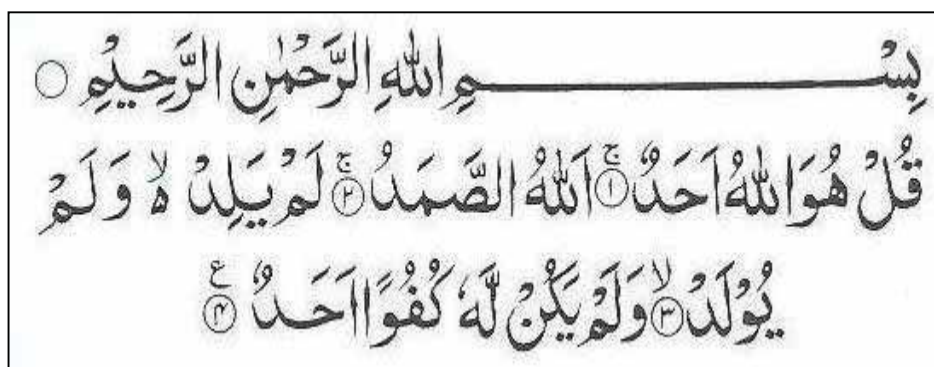 بِسْــــــــــمِ اللهِ الرَّحْمٰنِ الرَّحِيْمِ ○
قُلْ هُوَ اللهُ اَحَدٌ ۚ﴿۱﴾ اَللهُ الصَّمَدُ ۚ﴿۲﴾ لَمْ يَلِدْ ۙ۬ە وَلَمْ
يُوْلَدْ ۙ﴿۳﴾ وَلَمْ يَكُنْ لَّهٗ كُفُوًا اَحَدٌ ﴿۴﴾ ع